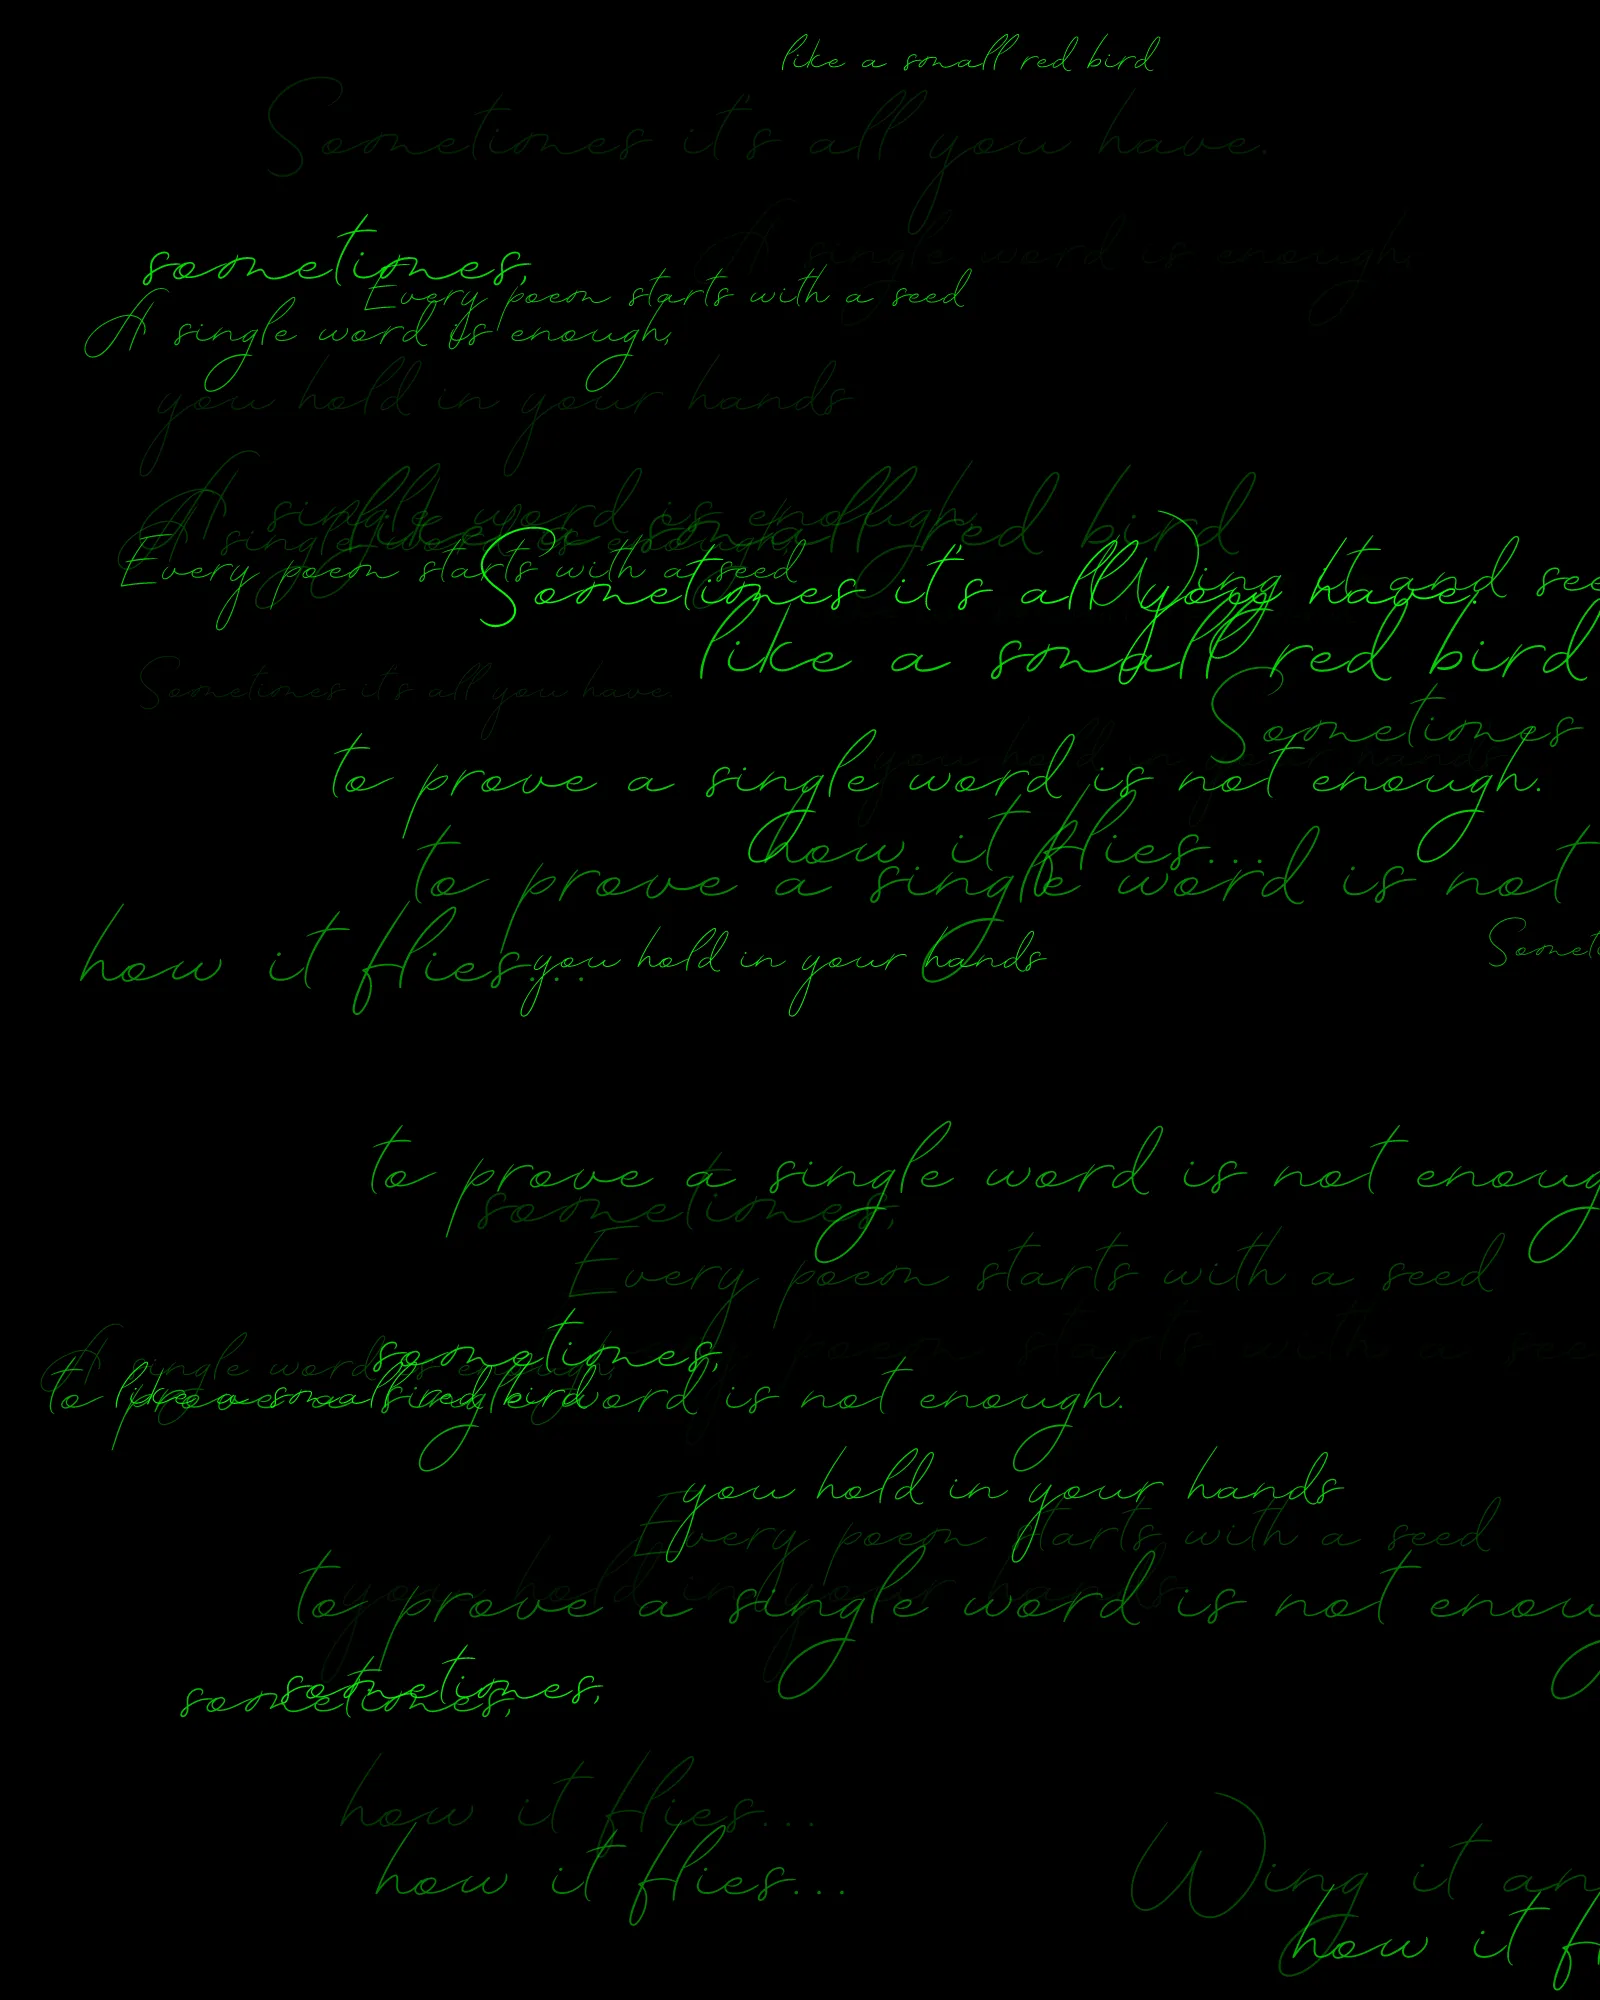 like a small red bird
Sometimes it's all you have.
A single word is enough,
sometimes,
Every poem starts with a seed
A single word is enough,
you hold in your hands
A single word is enough,
like a small red bird
A single word is enough,
Every poem starts with a seed
Sometimes it's all you have.
Wing it and see
like a small red bird
Sometimes it's all you have.
Sometimes
you hold in your hands
to prove a single word is not enough.
how it flies...
to prove a single word is not
how it flies...
you hold in your hands
Someti
to prove a single word is not enoug
sometimes,
Every poem starts with a seed
poem starts with a see
sometimes,
A single word is enough,
like a small red bird
to prove a single word is not enough.
you hold in your hands
Every poem starts with a seed
you hold in your hands
to prove a single word is not enou
sometimes,
sometimes,
how it flies...
how it flies...
Wing it an
how it f